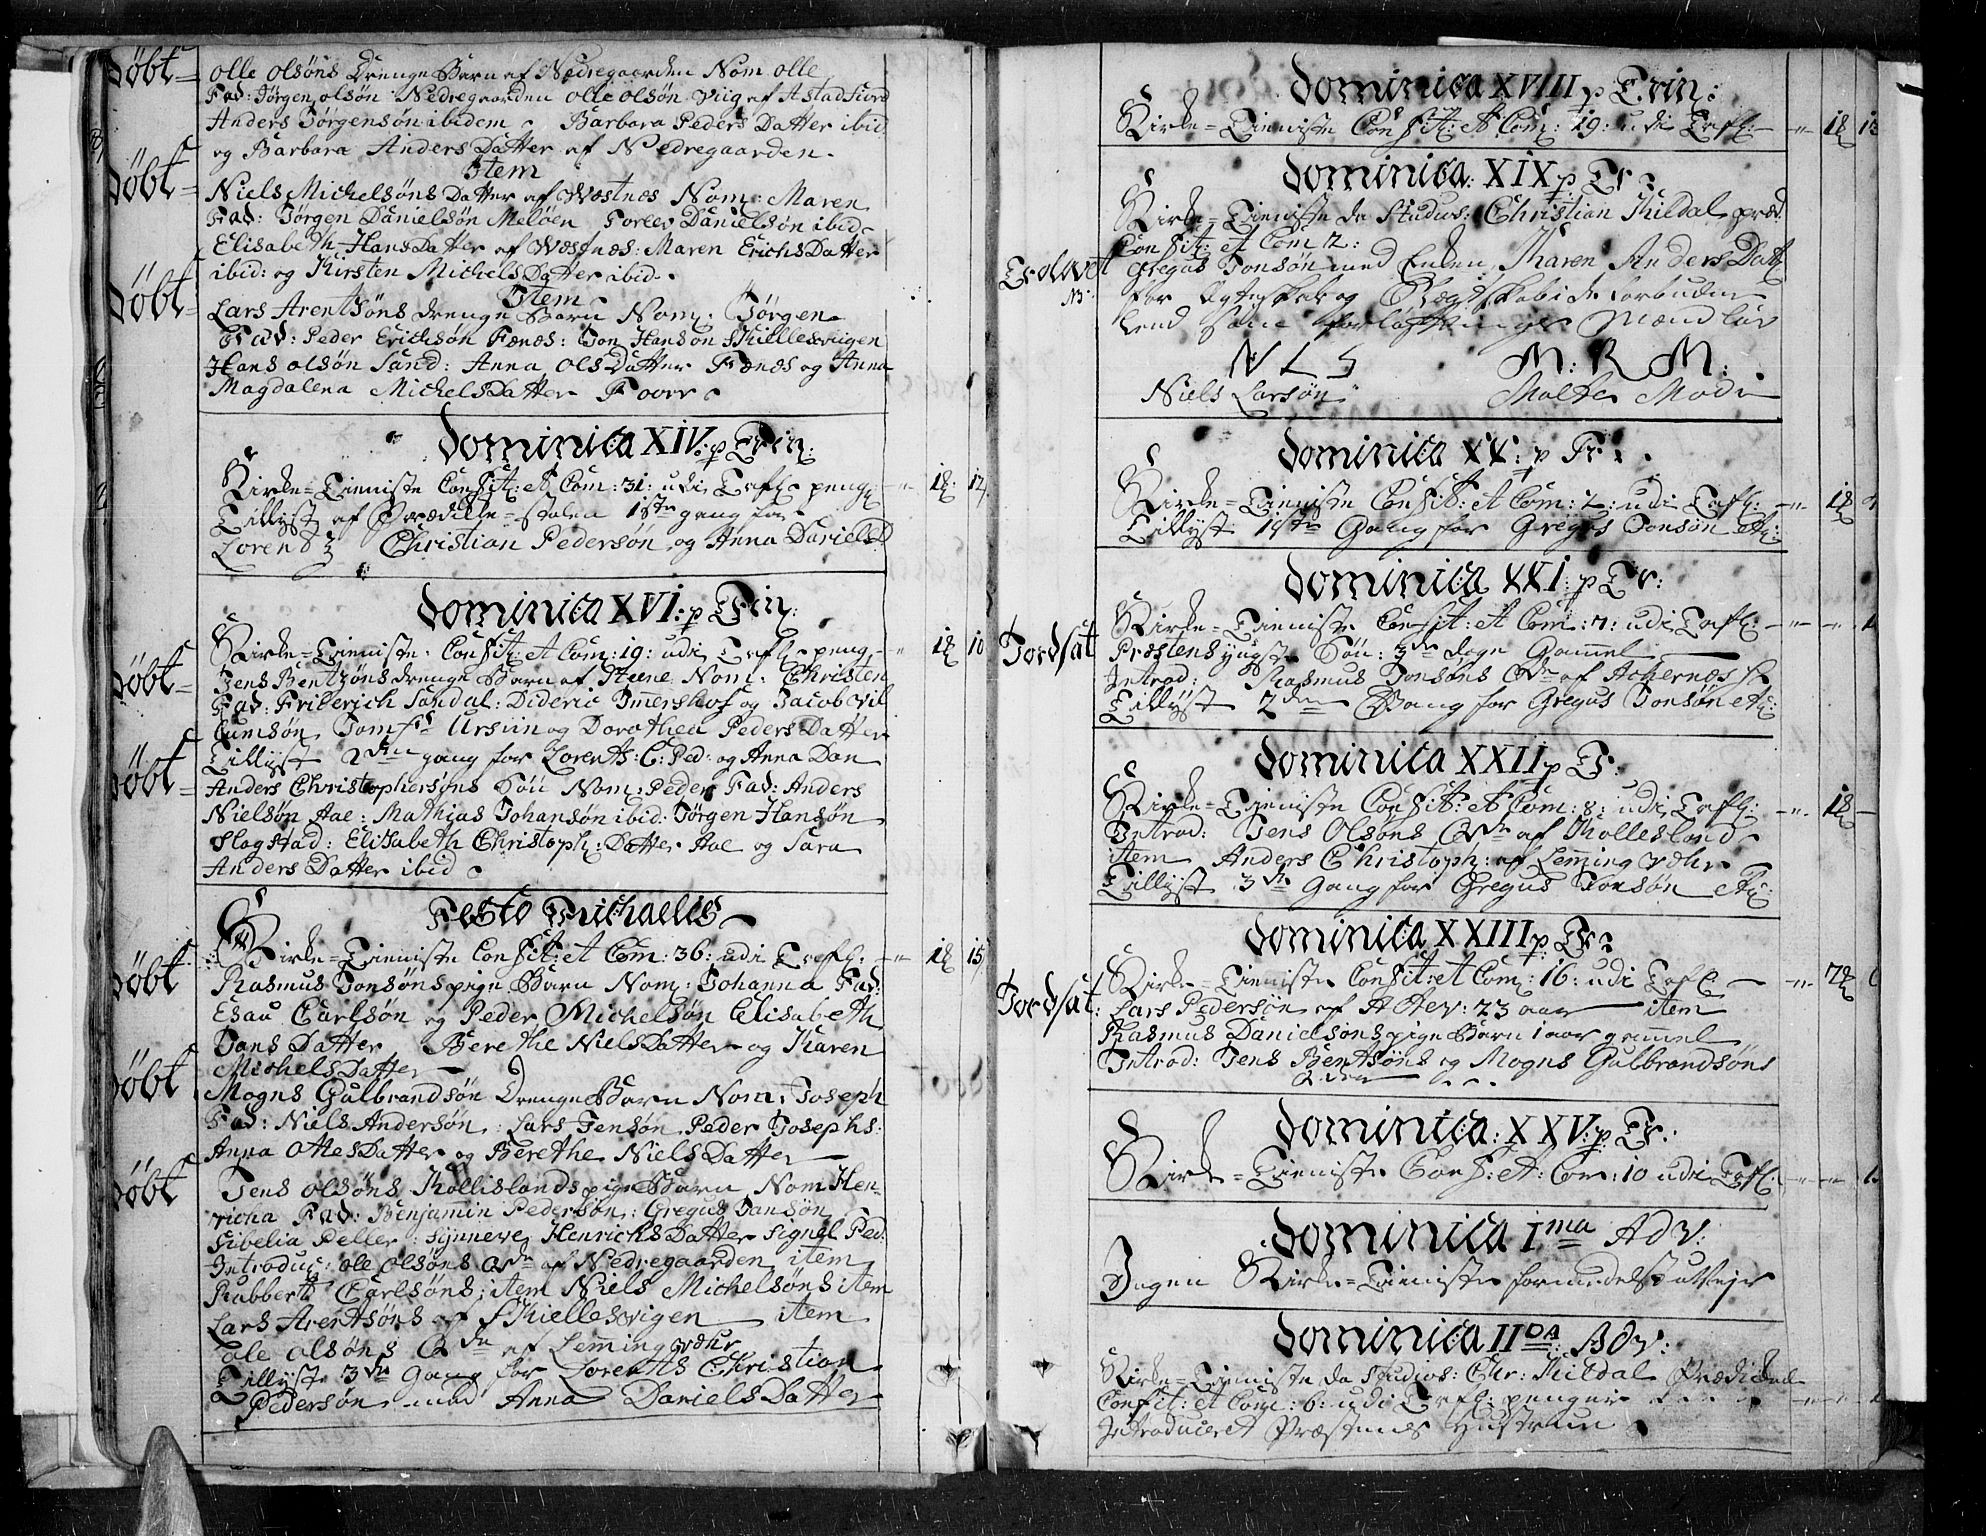 Döbt = Olle Olsöns Drenge Barn af Nedregaarden Nom olle
Fad: Jörgen olsön Nedregaarden olle olsön Viig af Astadfiord
Anders Jörgensön ibidem Barbara Peders Datter ibid
og Barbara Anders Datter af Nedregaarden.
Item
Döbt = Niels Michelsöns Datter af Wæstnes Nom: Maren
Fad: Jörgen Danielsön Melöen Torlev Danielsön ibid
Elisabeth Hans Datter af Wæstnæs: Maren Erichs Datter
ibid: og Kirsten Michels Datter ibid.
Item
Döbt = Lars Arentsöns drenge Barn Nom: Jörgen
Fad: Peder Erichsön Fænæs: Jon Hansön Skillesviigen
Hans olsön Sand: Anna Ols Datter Fænæs og Anna
Magdalena Michels Datter Foorr
Dominica XIV. p Trin:
Kirke = Tienniste Confit: et Com: 31: udi Tafl penge -"- 1℥ 12
Tillyst af Prædike = stolen 1ste gang for
Lorentz Christian Pedersön og Anna Daniels D
Dominica XVI: p Trin:
Kirke = Tienniste Confit: et Com: 19: udi Tafl peng - " 1℥ 10
Döbt = Jens Bentzöns drenge Barn af Steene Nom: Christen
Fad: Friderich Sandal: Dideric Immershof og Jacob Vil
lumsön Jomfr Ursiin og Dorothea Peders Datter
Tillyst 2den gang for Lorents: C: Ped: og Anna Dan
Döbt = Anders Christophersöns Sön Nom: Peder Fad: Anders
Nielsön Aae: Mathias Johansön ibid: Jörgen Hansön
Slogstad: Elisabeth Christoph: Datter Aae og Sara
Anders Datter ibid
Festo Michaelis
Kirke = Tienniste Confit: et Com: 36: udi Tafl: -"- 1℥ 15
Döbt Rasmus Jonsöns pige Barn Nom: Johanna Fad:
Esau Carlsön og Peder Michelsön Elisabeth
Jans Datter Berethe Niels Datter og Karen
Michels Datter
Döbt Mogns Gulbrandsön Drenge Barn Nom: Joseph
Fad: Niels Andersön: Lars Jensön Peder Josephs:
Anna Ottes Datter og Berethe Niels Datter
Döbt Jens olsöns Kollislands pige Barn Nom Hen=
richa Fad: Benjamin Pedersön: Gregus Jansön
Sibelia Peller: Synneve Henrichs Datter Signel Ped:
Introduc: ole olsöns Qde af Nedregaarden item
Rubbert Carlsöns: item Niels Michelsöns item
Lars Arentsöns af Skiellesvigen item
ole olsöns Qde af Lemmingvæhr
Tillyst 3de Gang for Lorents Christian
Pedersön med Anna Daniels Datter
Dominica XVIII p Trin:
Kirke = Tienniste Confit: et Com: 19: udi Tafl: -"- 1℥ 12
Dominica: XIX p: Tr:
Kirke = Tienniste da Studios: Christian Kildal præd:
Confit: et Com 2:
Trolovet Gregus Jonsön med Enken Karen Anders Datt
NB: for Egteskab og i de forbudne
Leed som forlöftninger Mænd lov
N L S M: R M:
Niels Larsön Malthe Mode
Dominica XX: p Tr:
Kirke = Tienniste Confit: et Com: 2: udi Tafl: -"- 1℥
Tillyst 1ste Gang for Gregus Jonsön etc:
Dominica XXI: p Tr:
Kirke = Tienniste Confit: et Com: 7: udi Tafl: -"-
Jordsat Præstens yngste Sön: 3de dage Gammel
Introd: Rasmus Jonsöns Qde af Achernæs
Tillyst 2den Gang for Gregus Jonsön etc:
Dominica XXII p Tr:
Kirke = Tienniste Confit: et Com: 8: udi Tafl: -"- 1℥ -
Introd: Jens Olsöns Qde af Kollesland
item Anders Christoph: af Lemmingvæhr
Tillyst 3de Gang for Gregus Jonsön etc:
Dominica XXIII p: Tr:
Kirke = Tienniste Confit: et Com: 16: udi Tafl: -"- 2℥
Jordsat: Lars Pedersön af : 23 aar item
Rasmus Danielsöns pige Barn 1 aar gammel
Introd: Jens Bentsöns og Mogns Gulbrandsöns
Qder
Dominica: XXV: p Tr:
Kirke = Tienniste Conf: et: Com: 10 udi Tafl: -"-
Dominica Ima Adv:
Ingen Kirke = Tienniste formedelst utvejr
Dominica IIDA Adv:
Kirke = Tienniste da Studios: Chr: Kildal Prædiked
Confit: et Com: 6: udi Tafl: penger -"-
Introduceret Præstens Hustrue